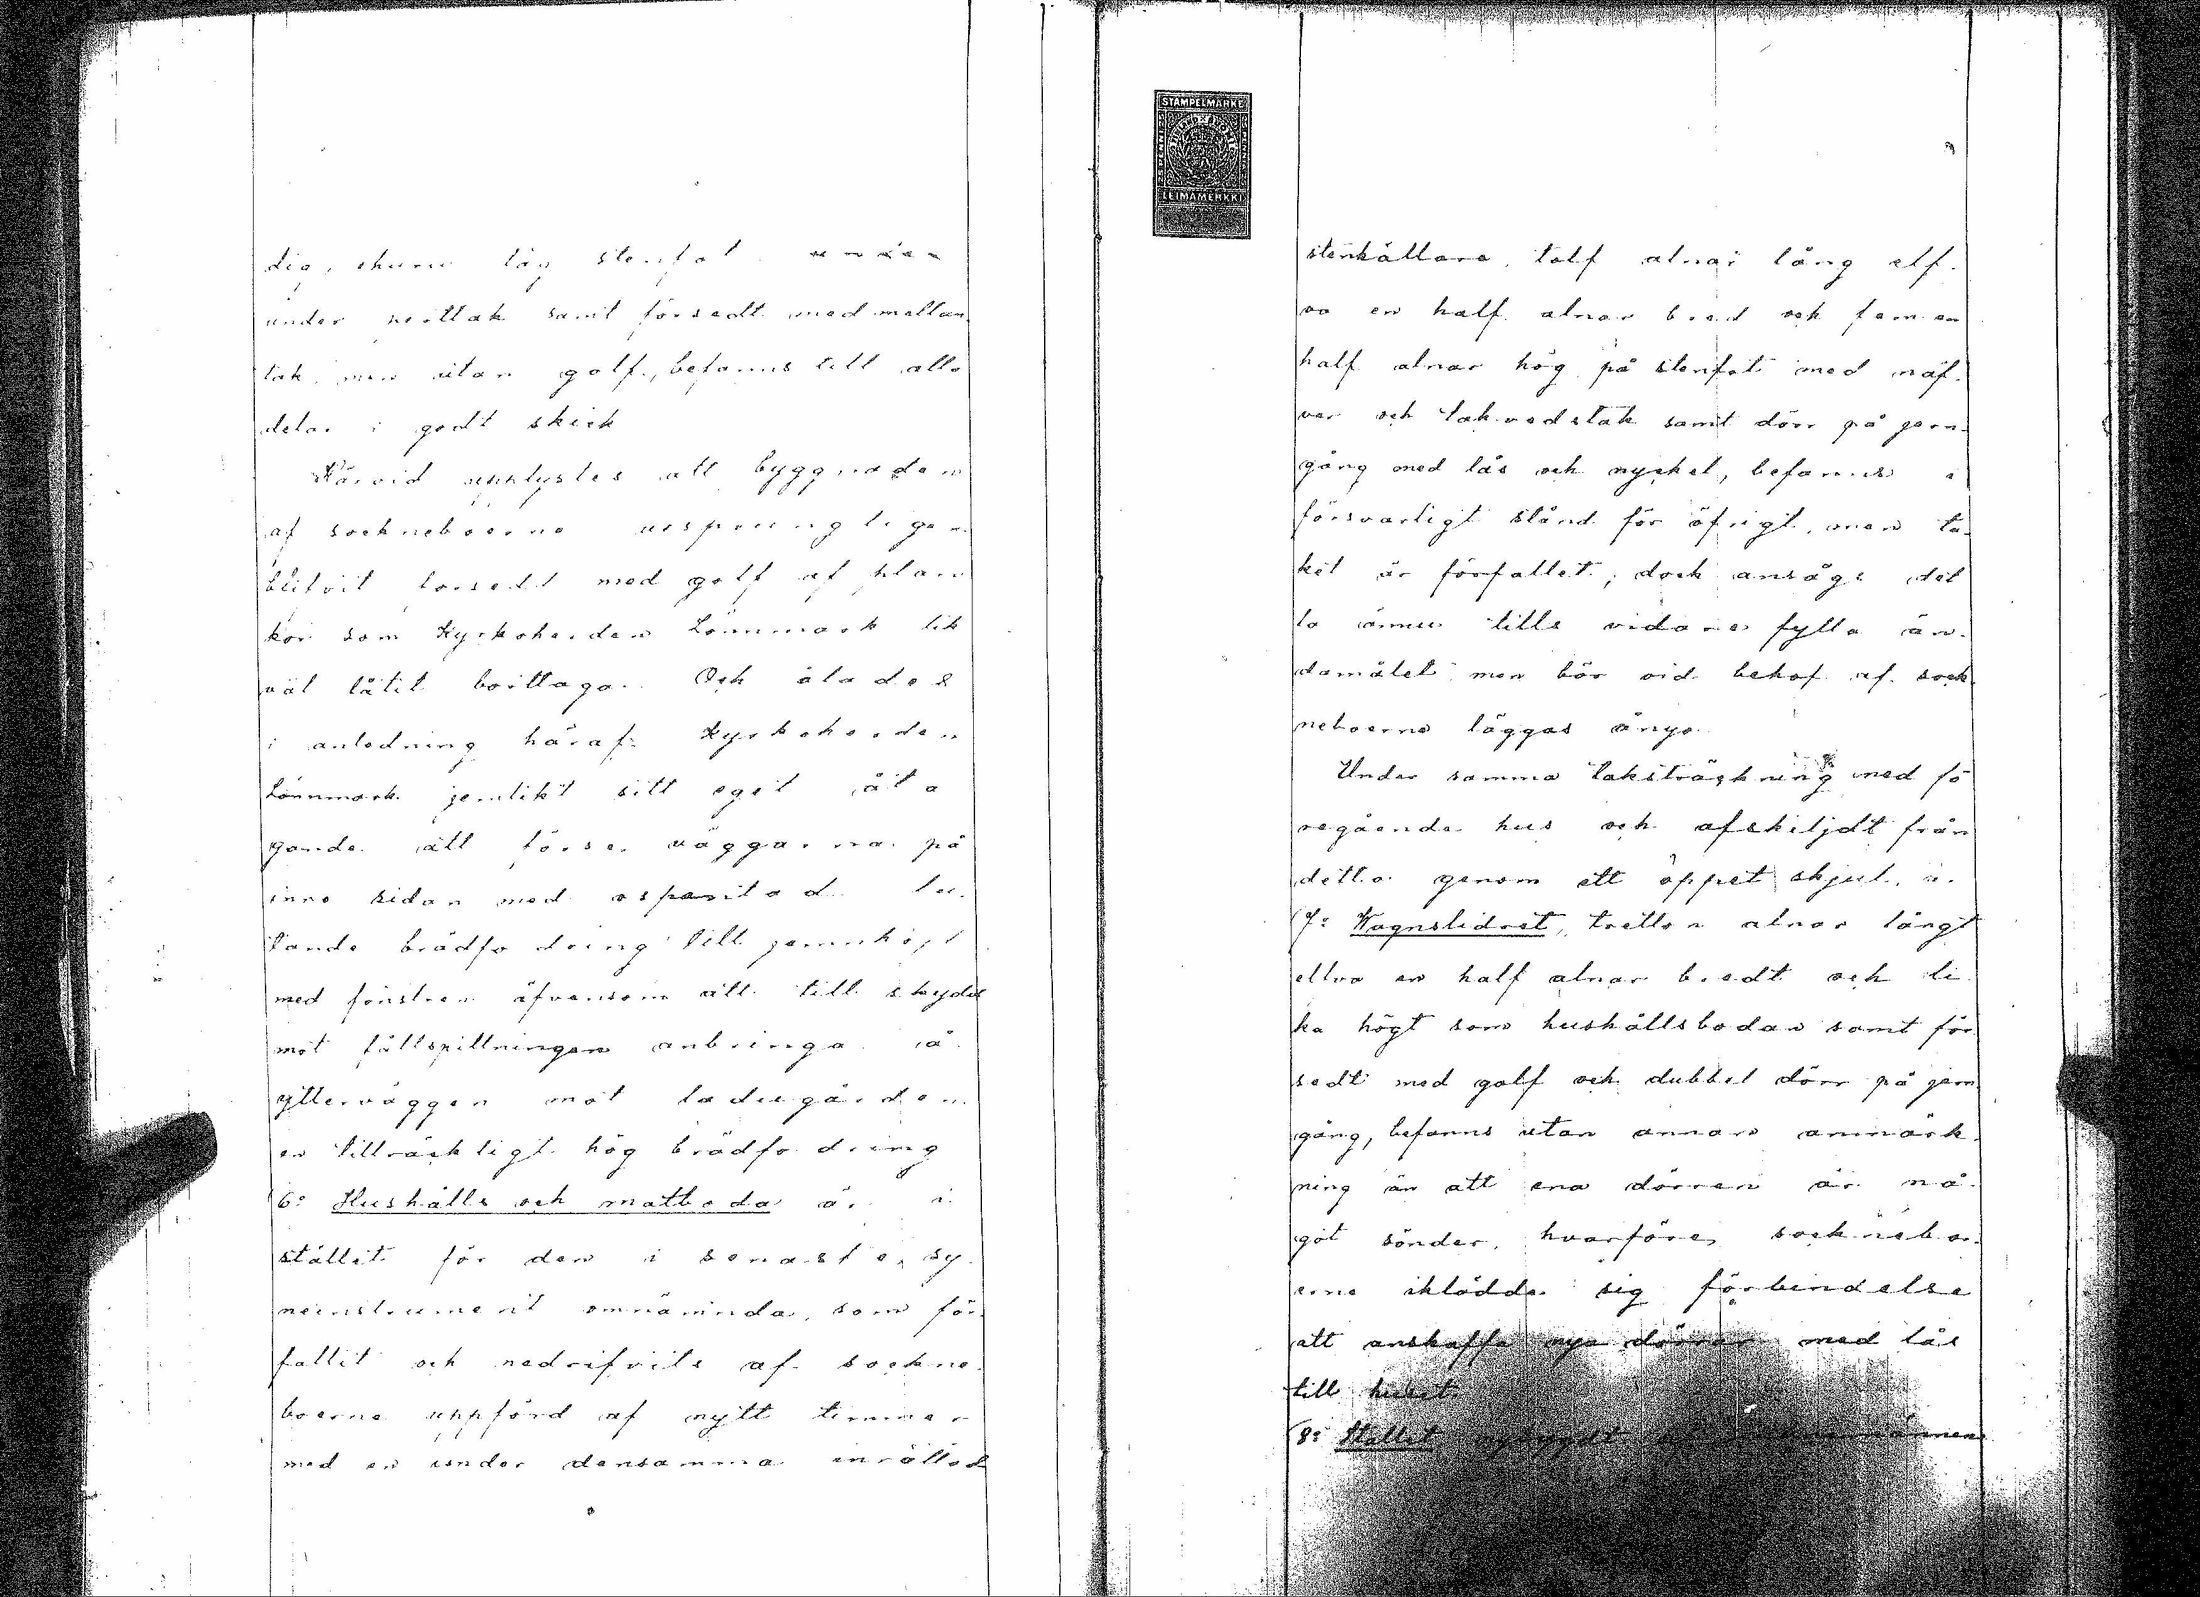 dig, ehuru låg stenfot
under nertak samt försedt med mellan
tak, men utan golf, befanns till alla
delar i godt skick
Härvid upplystes att byggnaden
af sockneboerne urspruungligen
blifvit försedt med golf af plan
kor som Kyrkoherden Lönnmark lik
väl låtit borttaga. Och ålades
i anledning häraf Kyrkoherden
Lönnmark jemlikt sitt eget åta
gande att förse väggarna på
inre sidan med
tande brädfodring till jemnhöjd
med fönstren äfvensom att till skydd
mot fållspillningen anbringa å
ytterväggen mot ladugården
en tillräckligt hög brädfodring
6o Hushålls och matboda är i
stället för den i senaste sy
neinstrument omnämnda, som för
fallit och nedrifvits af sockne
boerne uppförd af nytt timmer
med en under densamma inrättad
STÄMPELMÄRKE
LEIMAMERKKI
stenkällare, tolf alnar lång elf
va en half alnar bred och fem en
half alnar hög på stenfot med näf
ver och takvedstak samt dörr på jern
gång med lås och nyckel, befanns i
försvarligt stånd för öfrigt, men ta
ket är förfallet, dock ansågs det
ta ännu tills vidare fylla än
damålet men bör vid behof af sock
neboerne läggas ånyo.
Under samma taksträckning med fö
regående hus och afskiljdt från
detta genom ett öppet skjul, är
7o Wagnslidret, tretton alnar långt
ellva en half alnar bredt och li
ka högt som hushållsbodan samt för
sedt med golf och dubbel dörr på jern
gång, befanns utan annan anmärk
ning än att ena dörren är nå
got sönder, hvarföre sockneboe
erne iklädde sig förbindelse
att anskaffa nya dörrar med lås
till huset.
8o Stallet nybyggdt af